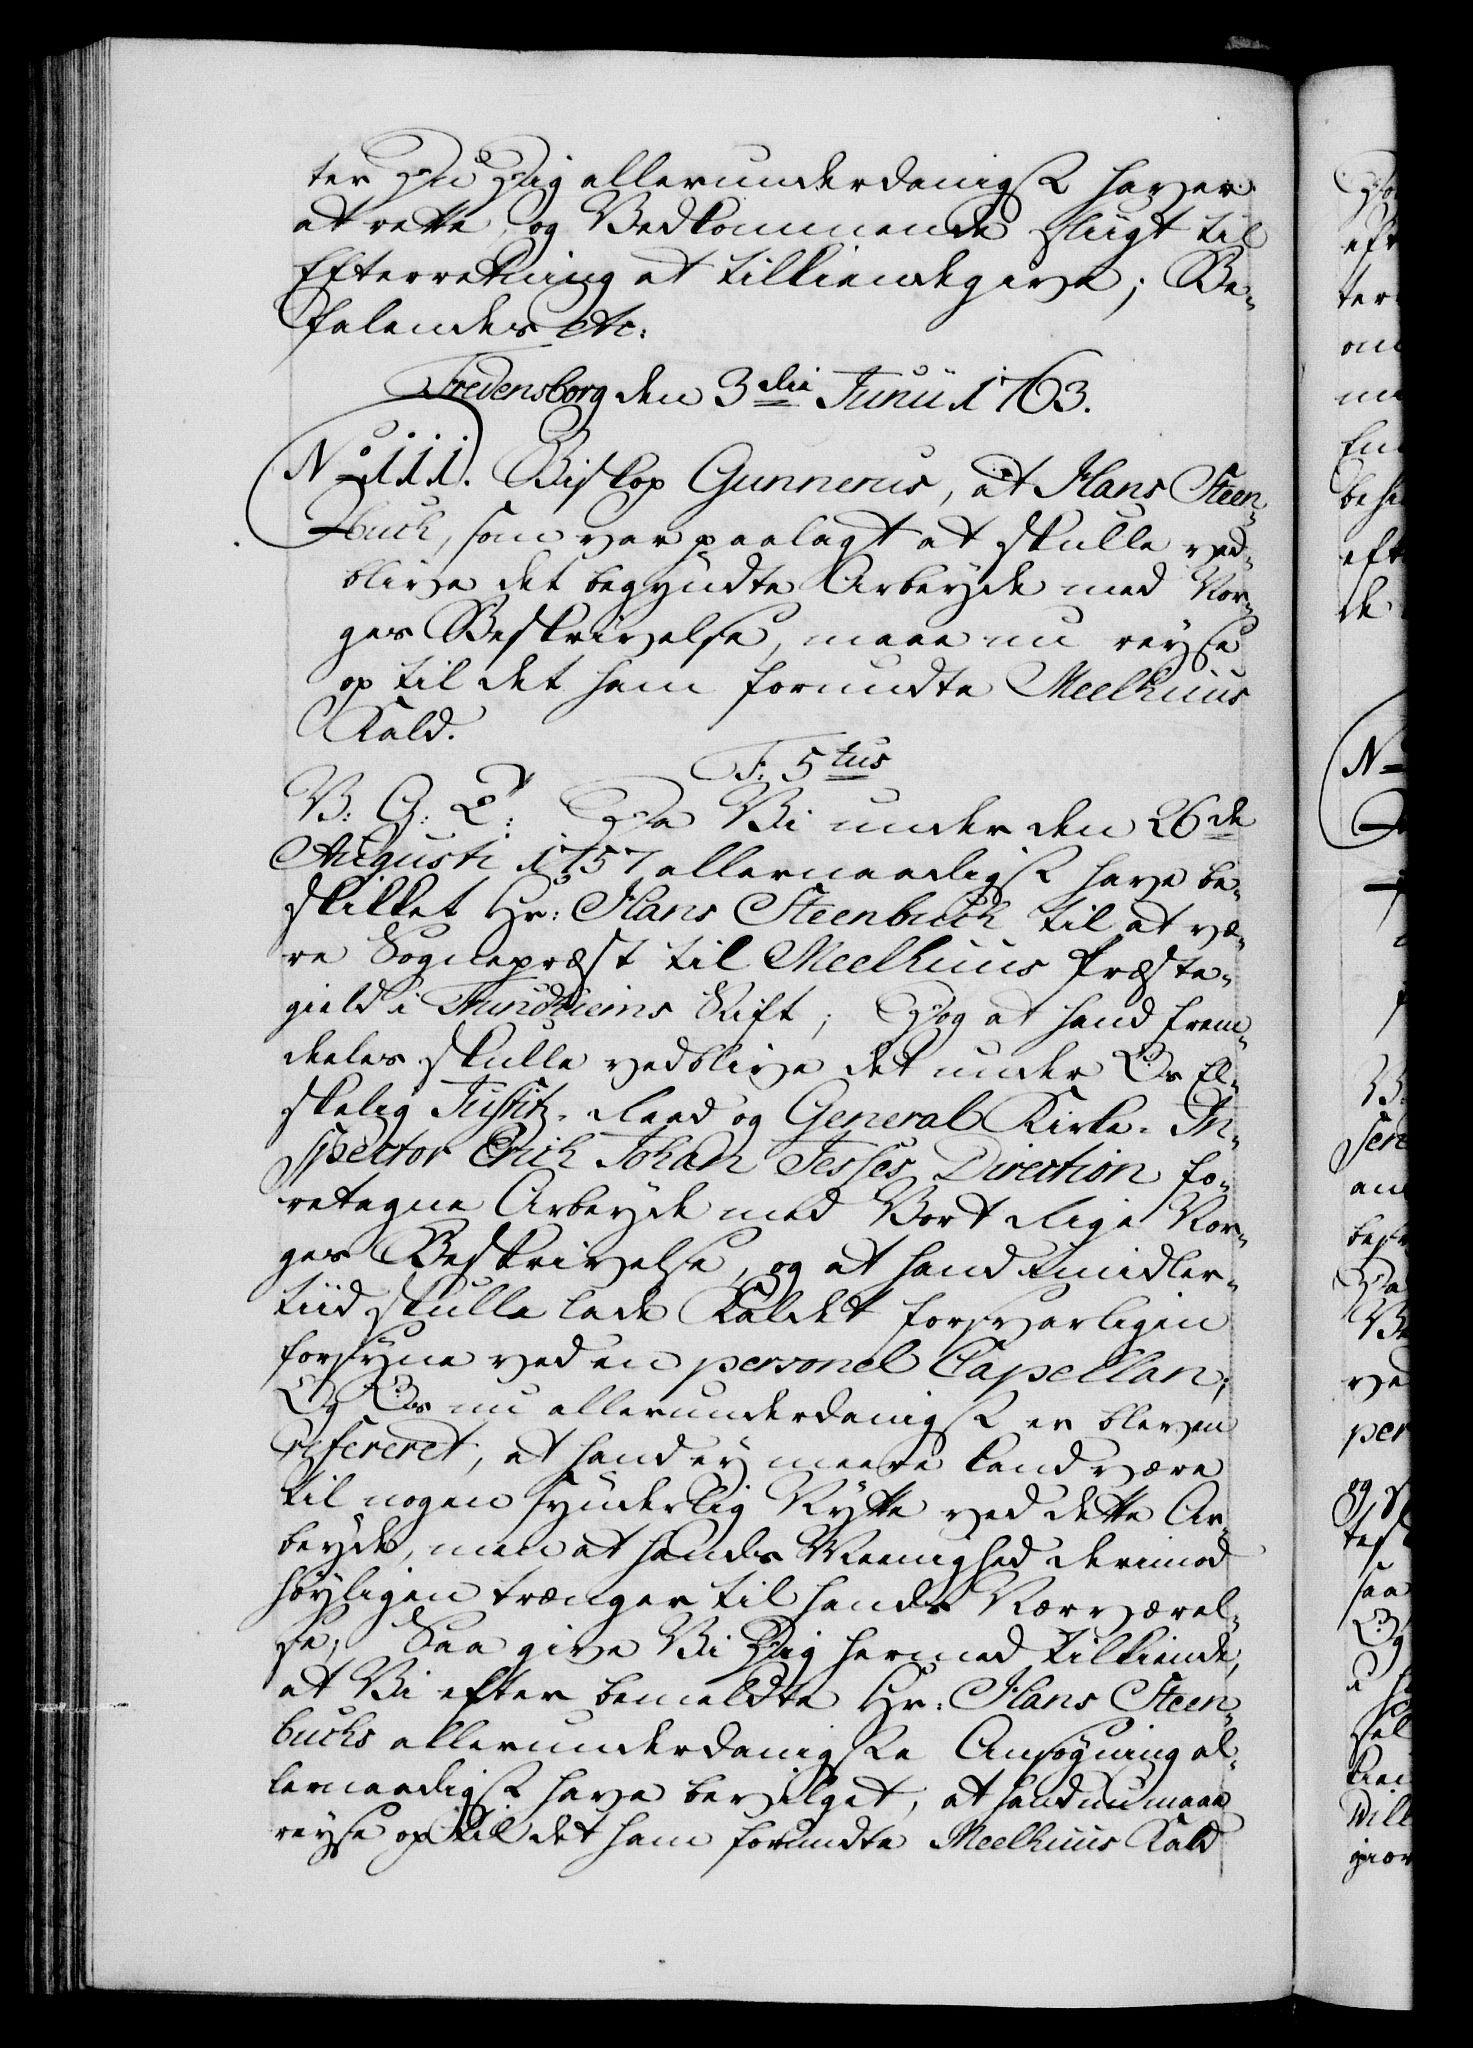 ter Du Dig allerunderdanigst haver
at rette, og Vedkommende sligt til
Efterretning at tilkiendegive; Be-
falendes etc:
Fredensborg den 3dii Junii 1763.
No 111. Biskop Gunnerus, at Hans Steen-
buch, som var paalagt at skulle ved-
blive det begyndte Arbeyde med Nor-
ges Beskrivelse, maae nu reyse
op til det ham forundte Meelhuus
Kald.
F: 5tus
V: G: T: Da Vi under den 26de
Augusti 1757 allernaadigst have be-
skikket Hr: Hans Steenbuch til at væ-
re Sognepræst til Meelhuus Præste-
gield i Trundhiems Stift; Dog at hand frem-
deeles skulle vedblive det under Os El-
skelig Justitz-Raad og General Kirke-In-
spector Erich Johan Jesses Direction fo-
retagne Arbeyde med Vort Rige Nor-
ges Beskrivelse, og at hand imidler-
tiid skulle lade Kaldet forsvarligen
forsyne ved en personel Capellan;
Og Os nu allerunderdanigst er bleven
refereret, at hand ey meere kand være
til nogen synderlig Nytte ved dette Ar-
beyde, men at hands Meenighed derimod
høyligen trænger til hands Nærværel-
se; Saa give Vi Dig hermed tilkiende,
at Vi efter bemeldte Hr: Hans Steen-
buchs allerunderdanigste Ansøgning al-
lernaadigst have bevilget, at hand nu maae
reyse op til det ham forundte Meelhuus Kald